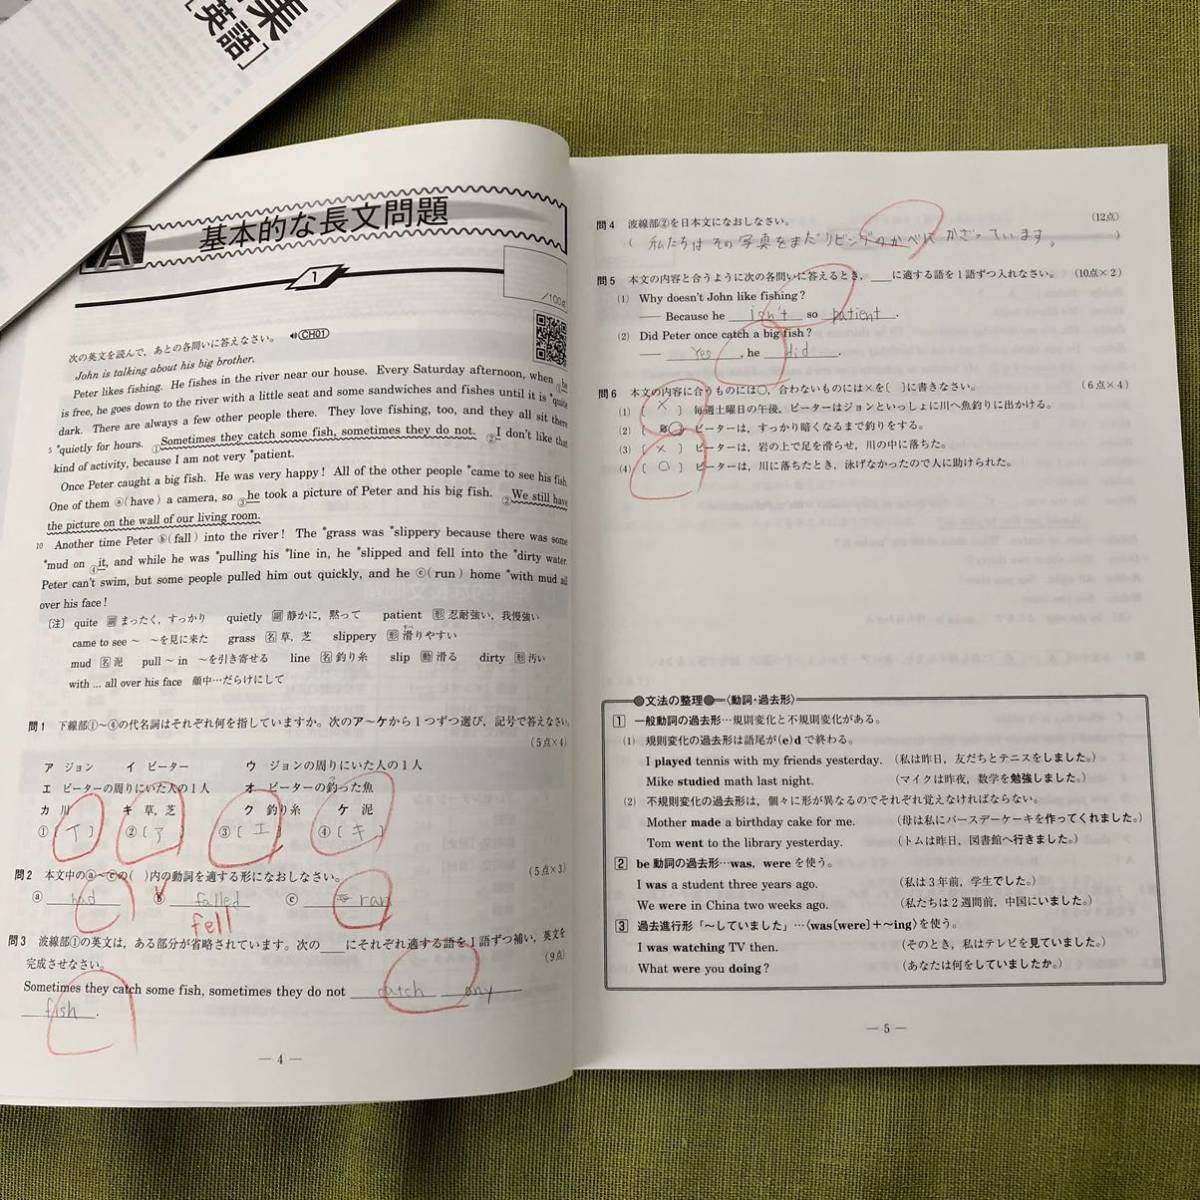 集
[英語]
A 基本的な長文問題
1
/100点
次の英文を読んで，あとの各問いに答えなさい。 CH01
John is talking about his big brother.
Peter likes fishing. He fishes in the river near our house. Every Saturday afternoon, when ①he
is free, he goes down to the river with a little seat and some sandwiches and fishes until it is *quite
dark. There are always a few other people there. They love fishing, too, and they all sit there
5 *quietly for hours. ①Sometimes they catch some fish, sometimes they do not. ②I don't like that
kind of activity, because I am not very *patient.
Once Peter caught a big fish. He was very happy! All of the other people *came to see his fish.
One of them ⓐ(have) a camera, so ③he took a picture of Peter and his big fish. ②We still have
the picture on the wall of our living room.
10 Another time Peter ⓑ(fall) into the river! The *grass was *slippery because there was some
*mud on ④it, and while he was *pulling his *line in, he *slipped and fell into the *dirty water.
Peter can't swim, but some people pulled him out quickly, and he ⓒ(run) home *with mud all
over his face!
〔注〕 quite 副 まったく，すっかり quietly 副 静かに，黙って patient 形 忍耐強い，我慢強い
came to see〜 〜を見に来た grass 名 草，芝 slippery 形 滑りやすい
mud 名 泥 pull〜in 〜を引き寄せる line 名 釣り糸 slip 動 滑る dirty 形 汚い
with ... all over his face 顔中…だらけにして
問1 下線部①〜④の代名詞はそれぞれ何を指していますか。次のア〜ケから1つずつ選び，記号で答えなさい。
(5点×4)
ア ジョン イ ピーター ウ ジョンの周りにいた人の1人
エ ピーターの周りにいた人の1人 オ ピーターの釣った魚
カ 川 キ 草，芝 ク 釣り糸 ケ 泥
①〔イ〕 ②〔ア〕 ③〔エ〕 ④〔キ〕
問2 本文中のⓐ〜ⓒの( )内の動詞を適する形になおしなさい。 (5点×3)
ⓐ had ⓑ falled ⓒ ran
fell
問3 波線部①の英文は，ある部分が省略されています。次の＿＿にそれぞれ適する語を1語ずつ補い，英文を
完成させなさい。 (9点)
Sometimes they catch some fish, sometimes they do not catch any
fish.
— 4 —
問4 波線部②を日本文になおしなさい。 (12点)
( 私たちはその写真をまだリビングのかべにかざっています。 )
問5 本文の内容と合うように次の各問いに答えるとき，＿＿に適する語を1語ずつ入れなさい。 (10点×2)
(1) Why doesn't John like fishing?
— Because he isn't so patient.
(2) Did Peter once catch a big fish?
— Yes, he did.
問6 本文の内容に合うものには○，合わないものには×を〔 〕に書きなさい。 (6点×4)
(1) 〔×〕 毎週土曜日の午後，ピーターはジョンといっしょに川へ魚釣りに出かける。
(2) 〔○ ピーターは，すっかり暗くなるまで釣りをする。
(3) 〔×〕 ピーターは，岩の上で足を滑らせ，川の中に落ちた。
(4) 〔○〕 ピーターは，川に落ちたとき，泳げなかったので人に助けられた。
●文法の整理●—〈動詞・過去形〉
1 一般動詞の過去形…規則変化と不規則変化がある。
(1) 規則変化の過去形は語尾が(e)dで終わる。
I played tennis with my friends yesterday. (私は昨日，友だちとテニスをしました。)
Mike studied math last night. (マイクは昨夜，数学を勉強しました。)
(2) 不規則変化の過去形は，個々に形が異なるのでそれぞれ覚えなければならない。
Mother made a birthday cake for me. (母は私にバースデーケーキを作ってくれました。)
Tom went to the library yesterday. (トムは昨日，図書館へ行きました。)
2 be動詞の過去形…was, wereを使う。
I was a student three years ago. (私は3年前，学生でした。)
We were in China two weeks ago. (私たちは2週間前，中国にいました。)
3 過去進行形「〜していました」…〈was[were]＋〜ing〉を使う。
I was watching TV then. (そのとき，私はテレビを見ていました。)
What were you doing? (あなたは何をしていましたか。)
— 5 —